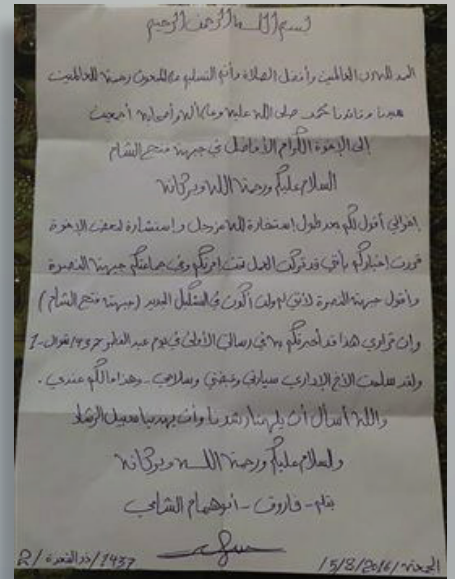 بسم الله الرحمن الرحيم
الحمد لله رب العالمين وأفضل الصلاة وأتم التسليم على المبعوث رحمة للعالمين
سيدنا وقائدنا محمد صلى الله عليه وعلى آله وأصحابه أجمعين
إلى الإخوة الكرام الأفاضل في جبهة فتح الشام
السلام عليكم ورحمة الله وبركاته
إخواني أقول لكم بعد طول إستخارة لله عز وجل وإستشارة لبعض الإخوة
قررت إخباركم بأني قد تركت العمل تحت إمرتكم وفي جماعتكم جبهة النصرة
وأقول جبهة النصرة لأني لم ولن أكون في التشكيل الجديد (جبهة فتح الشام)
وإن قراري هذا قد أخبرتكم به في رسالتي الأولى في يوم عيد الفطر 1437/شوال-1
ولقد سلمت الأخ الإداري سيارتي وقبضتي وسلاحي - وهذا مالكم عندي.
والله أسأل أن يلهمنا رشدنا وأن يهدينا سبيل الرشاد
والسلام عليكم ورحمة الله وبركاته
بقلم - فاروق - أبو همام الشامي
الجمعة/5/8/2016/
1437/ذو القعدة/2